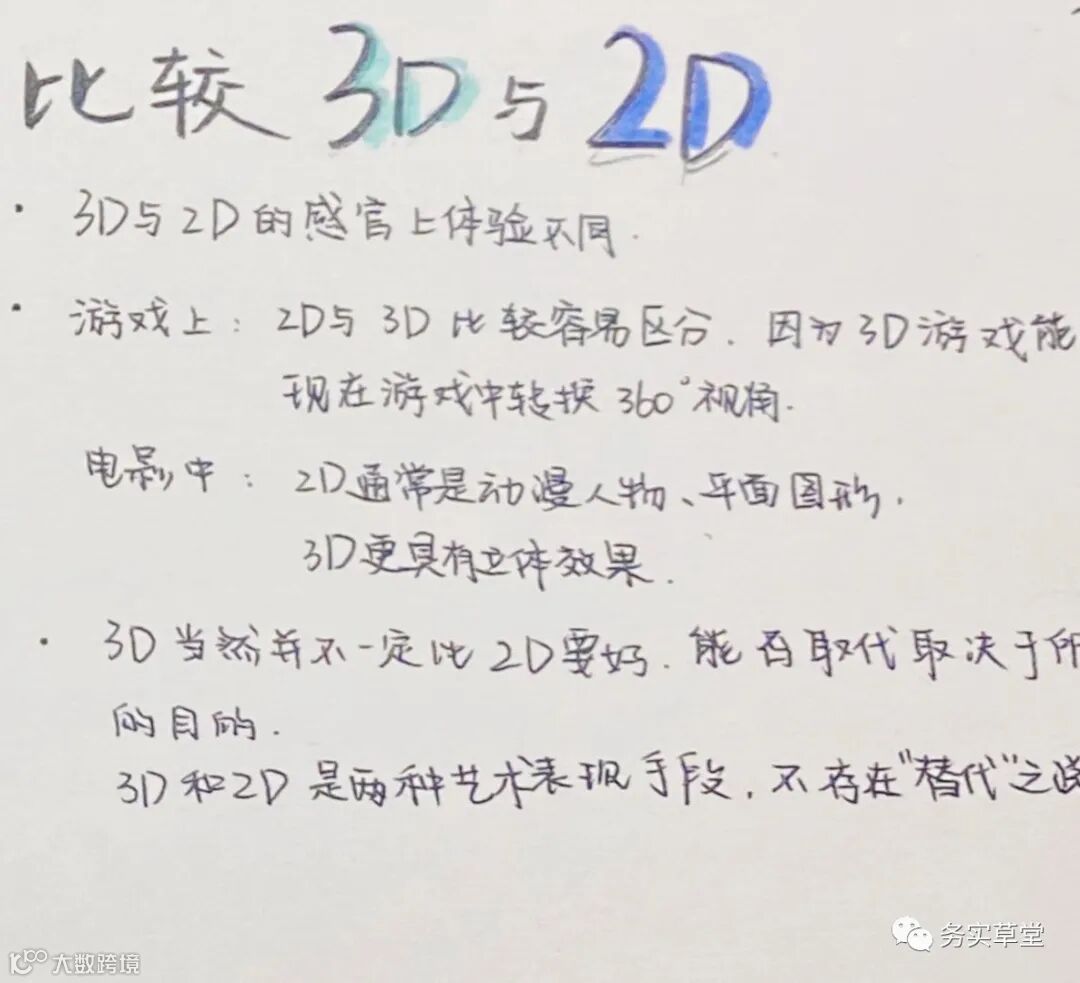 比较 3D 与 2D
· 3D与2D的感官上体验不同.
· 游戏上: 2D与3D比较容易区分. 因为3D游戏能
现在游戏中转换360°视角.
电影中: 2D通常是动漫人物、平面图形.
3D更具有立体效果.
· 3D当然并不一定比2D要好. 能否取代取决于所
的目的.
3D和2D是两种艺术表现手段, 不存在"替代"之说
务实草堂
大数跨境